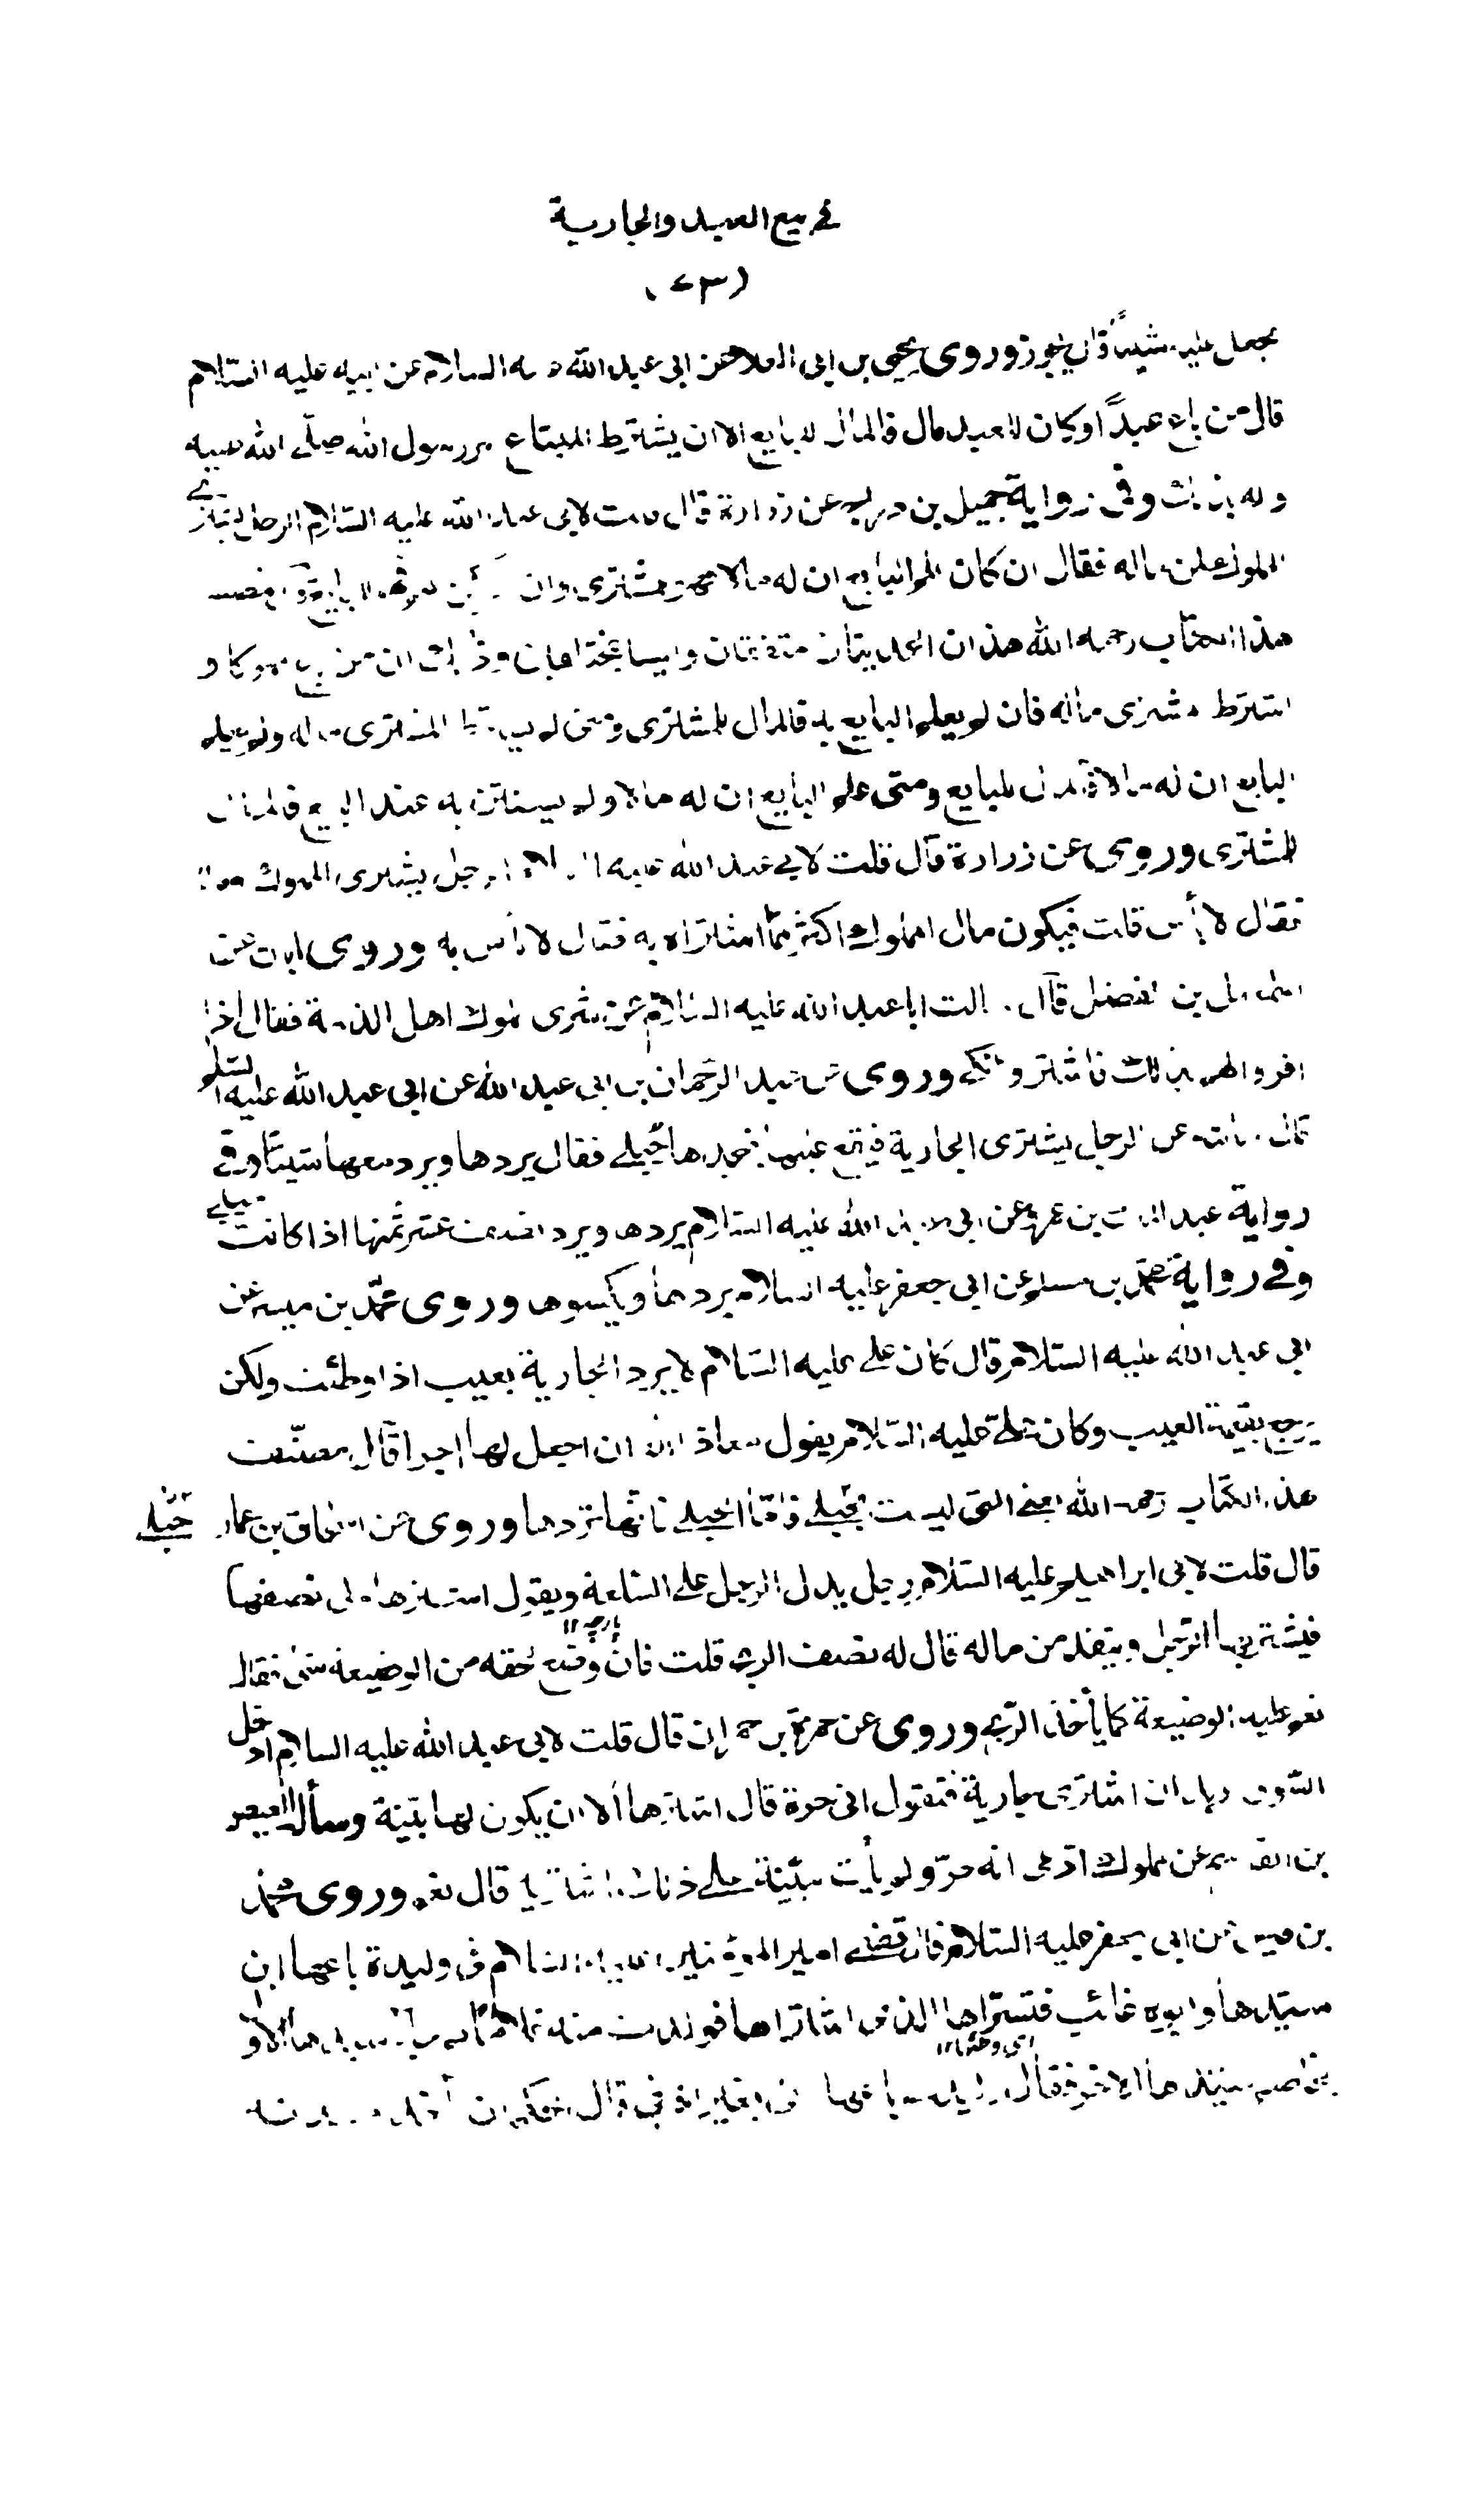 في بيع العبيد والجارية
(٢٣٠
يجعل عليه شيئاً قال يجوز وروى يحيى بن ابى العلا عن ابى عبد الله عليه السلام عن ابيه عليه السّلام
قال من باع عبداً وكان للعبد مال فالمال للبايع الا ان يشترط المبتاع امر رسول الله صلّى الله عليه
واله بذلك وفى رواية جميل بن دراج عن زرارة قال قلت لابى عبد الله عليه السّلام الرجل يشترى
المملوك لمن ماله فقال ان كان علم البايع ان له مالا فهو للمشترى وان لم يكن علم فهو للبايع قال مصنف
هذا الكتاب رحمه الله هذان الحديثان متفقان وليسا بمختلفين وذلك ان من باع مملوكا و
اشترط المشترى ماله فان لم يعلم البايع به فالمال للمشترى ومتى لم يشترط المشترى ماله ولم يعلم
البايع ان له مالا فالمال للبايع ومتى علم البايع ان له مالا ولم يستثن به عند البيع فالمال
للمشترى وروى عن زرارة قال قلت لابى عبد الله عليه السلام الرجل يشترى المملوك وماله
فقال لا بأس قلت فيكون مال المملوك اكثر ممّا اشتراه به فقال لا بأس به وروى ابان عن
اسماعيل بن الفضل قال سالت ابا عبد الله عليه السّلام عن شرى مملوك اهل الذمة فقال اذا
اقروا لهم بذلك فاشتر وانكح وروى عن عبد الرّحمان بن ابى عبد الله عن ابى عبد الله عليه السلم
قال سالته عن الرجل يشترى الجارية فيقع عليها فيجدها حُبلى فقال يردها ويرد معها شيئا وفى
رواية عبد الملك بن عمرو عن ابى عبد الله عليه السّلام يردها ويرد نصف عشر ثمنها اذا كانت حبلى
وفى رواية محمّد بن مسلم عن ابى جعفر عليه السلام يردها ويكسوها وروى محمّد بن ميسر عن
ابى عبد الله عليه السّلام قال كان على عليه السّلام لا يرد الجارية بعيب اذا وطئت ولكن
يرجع بقيمة العيب وكان على عليه السّلام يقول معاذ الله ان اجعل لها اجرا قال مصنّف
هذا الكتاب رحمه الله يعنى التى ليست بحُبلى فامّا الحبلى فانّها تردها وروى عن اسحاق بن عمار
حُبلى
قال قلت لابى ابراهيم عليه السّلام رجل يدل الرجل على السّلعة ويقول اشترها ولى نصفها
فيشتريها الرّجل وينقد من ماله قال له نصف الربح قلت فان وضع لحقه من الوضيعة شئ فقال
پارچه ١٢
نعم عليه الوضيعة كما يأخذ الرّبح وروى عن حمزة بن حمران قال قلت لابى عبد الله عليه السلام ادخل
السّوق اريد ان اشترى جارية فتقول انى حرة قال اشترها الا ان يكون لها بيّنة وسأله العيص
بن القسيم عن مملوك ادّعى انه حرّ ولم يأت ببيّنة على ذلك اشتريه قال نعم وروى محمّد
بن قيس عن ابى جعفر عليه السّلام قال قضى امير المؤمنين عليه السّلام فى وليدة باعها ابن
سيّدها وابوه غائب فتسرّاها الذى اشتراها فولدت منه غلاما ثم جاء سيدها الاوّل
اى وطئها ١٢
يخاصم سيّدها الاخر فقال وليدتى باعها ابنى بغير اذنى قال الحكم ان ياخذ وليدته